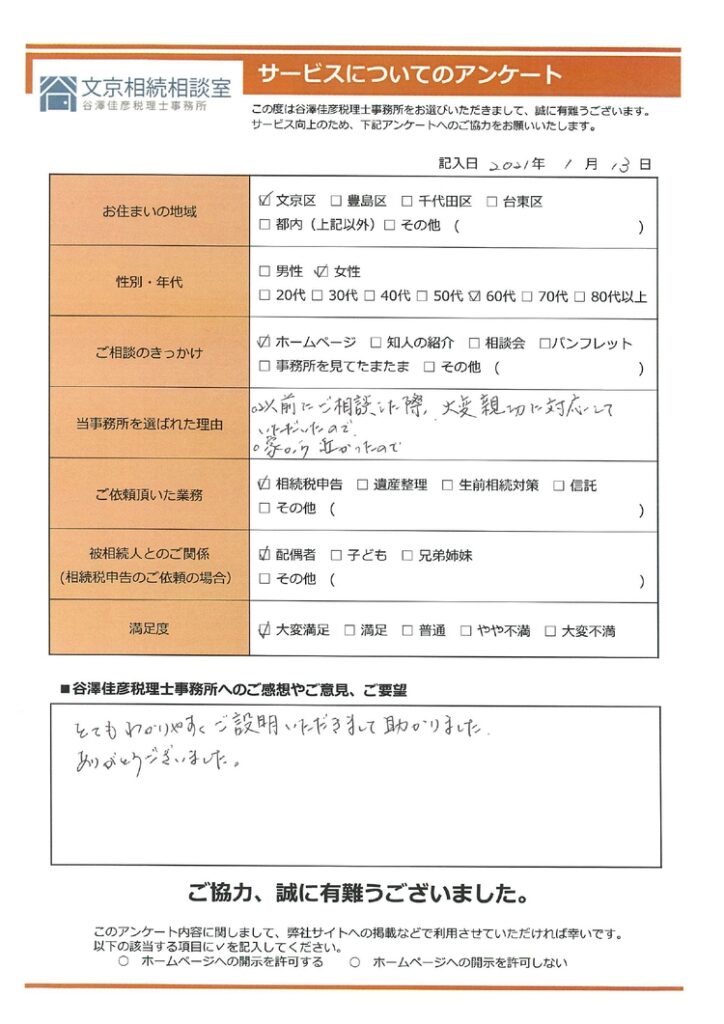 文京相続相談室
谷澤佳彦税理士事務所
サービスについてのアンケート
この度は谷澤佳彦税理士事務所をお選びいただきまして、誠に有難うございます。
サービス向上のため、下記アンケートへのご協力をお願いいたします。
記入日 2021年 1月 13日
お住まいの地域
☑ 文京区 □ 豊島区 □ 千代田区 □ 台東区
□ 都内（上記以外）□ その他 （ ）
性別・年代
□ 男性 ☑ 女性
□ 20代 □ 30代 □ 40代 □ 50代 ☑ 60代 □ 70代 □ 80代以上
ご相談のきっかけ
☑ ホームページ □ 知人の紹介 □ 相談会 □パンフレット
□ 事務所を見てたまたま □ その他 （ ）
当事務所を選ばれた理由
○以前にご相談した際、大変親切に対応して
いただいたので
○家から近かったので
ご依頼頂いた業務
☑ 相続税申告 □ 遺産整理 □ 生前相続対策 □ 信託
□ その他 （ ）
被相続人とのご関係
(相続税申告のご依頼の場合)
☑ 配偶者 □ 子ども □ 兄弟姉妹
□ その他 （ ）
満足度
☑ 大変満足 □ 満足 □ 普通 □ やや不満 □ 大変不満
■谷澤佳彦税理士事務所へのご感想やご意見、ご要望
とてもわかりやすくご説明いただきまして助かりました.
ありがとうございました。
ご協力、誠に有難うございました。
このアンケート内容に関しまして、弊社サイトへの掲載などで利用させていただければ幸いです。
以下の該当する項目に✓を記入してください。
○ ホームページへの開示を許可する ○ ホームページへの開示を許可しない